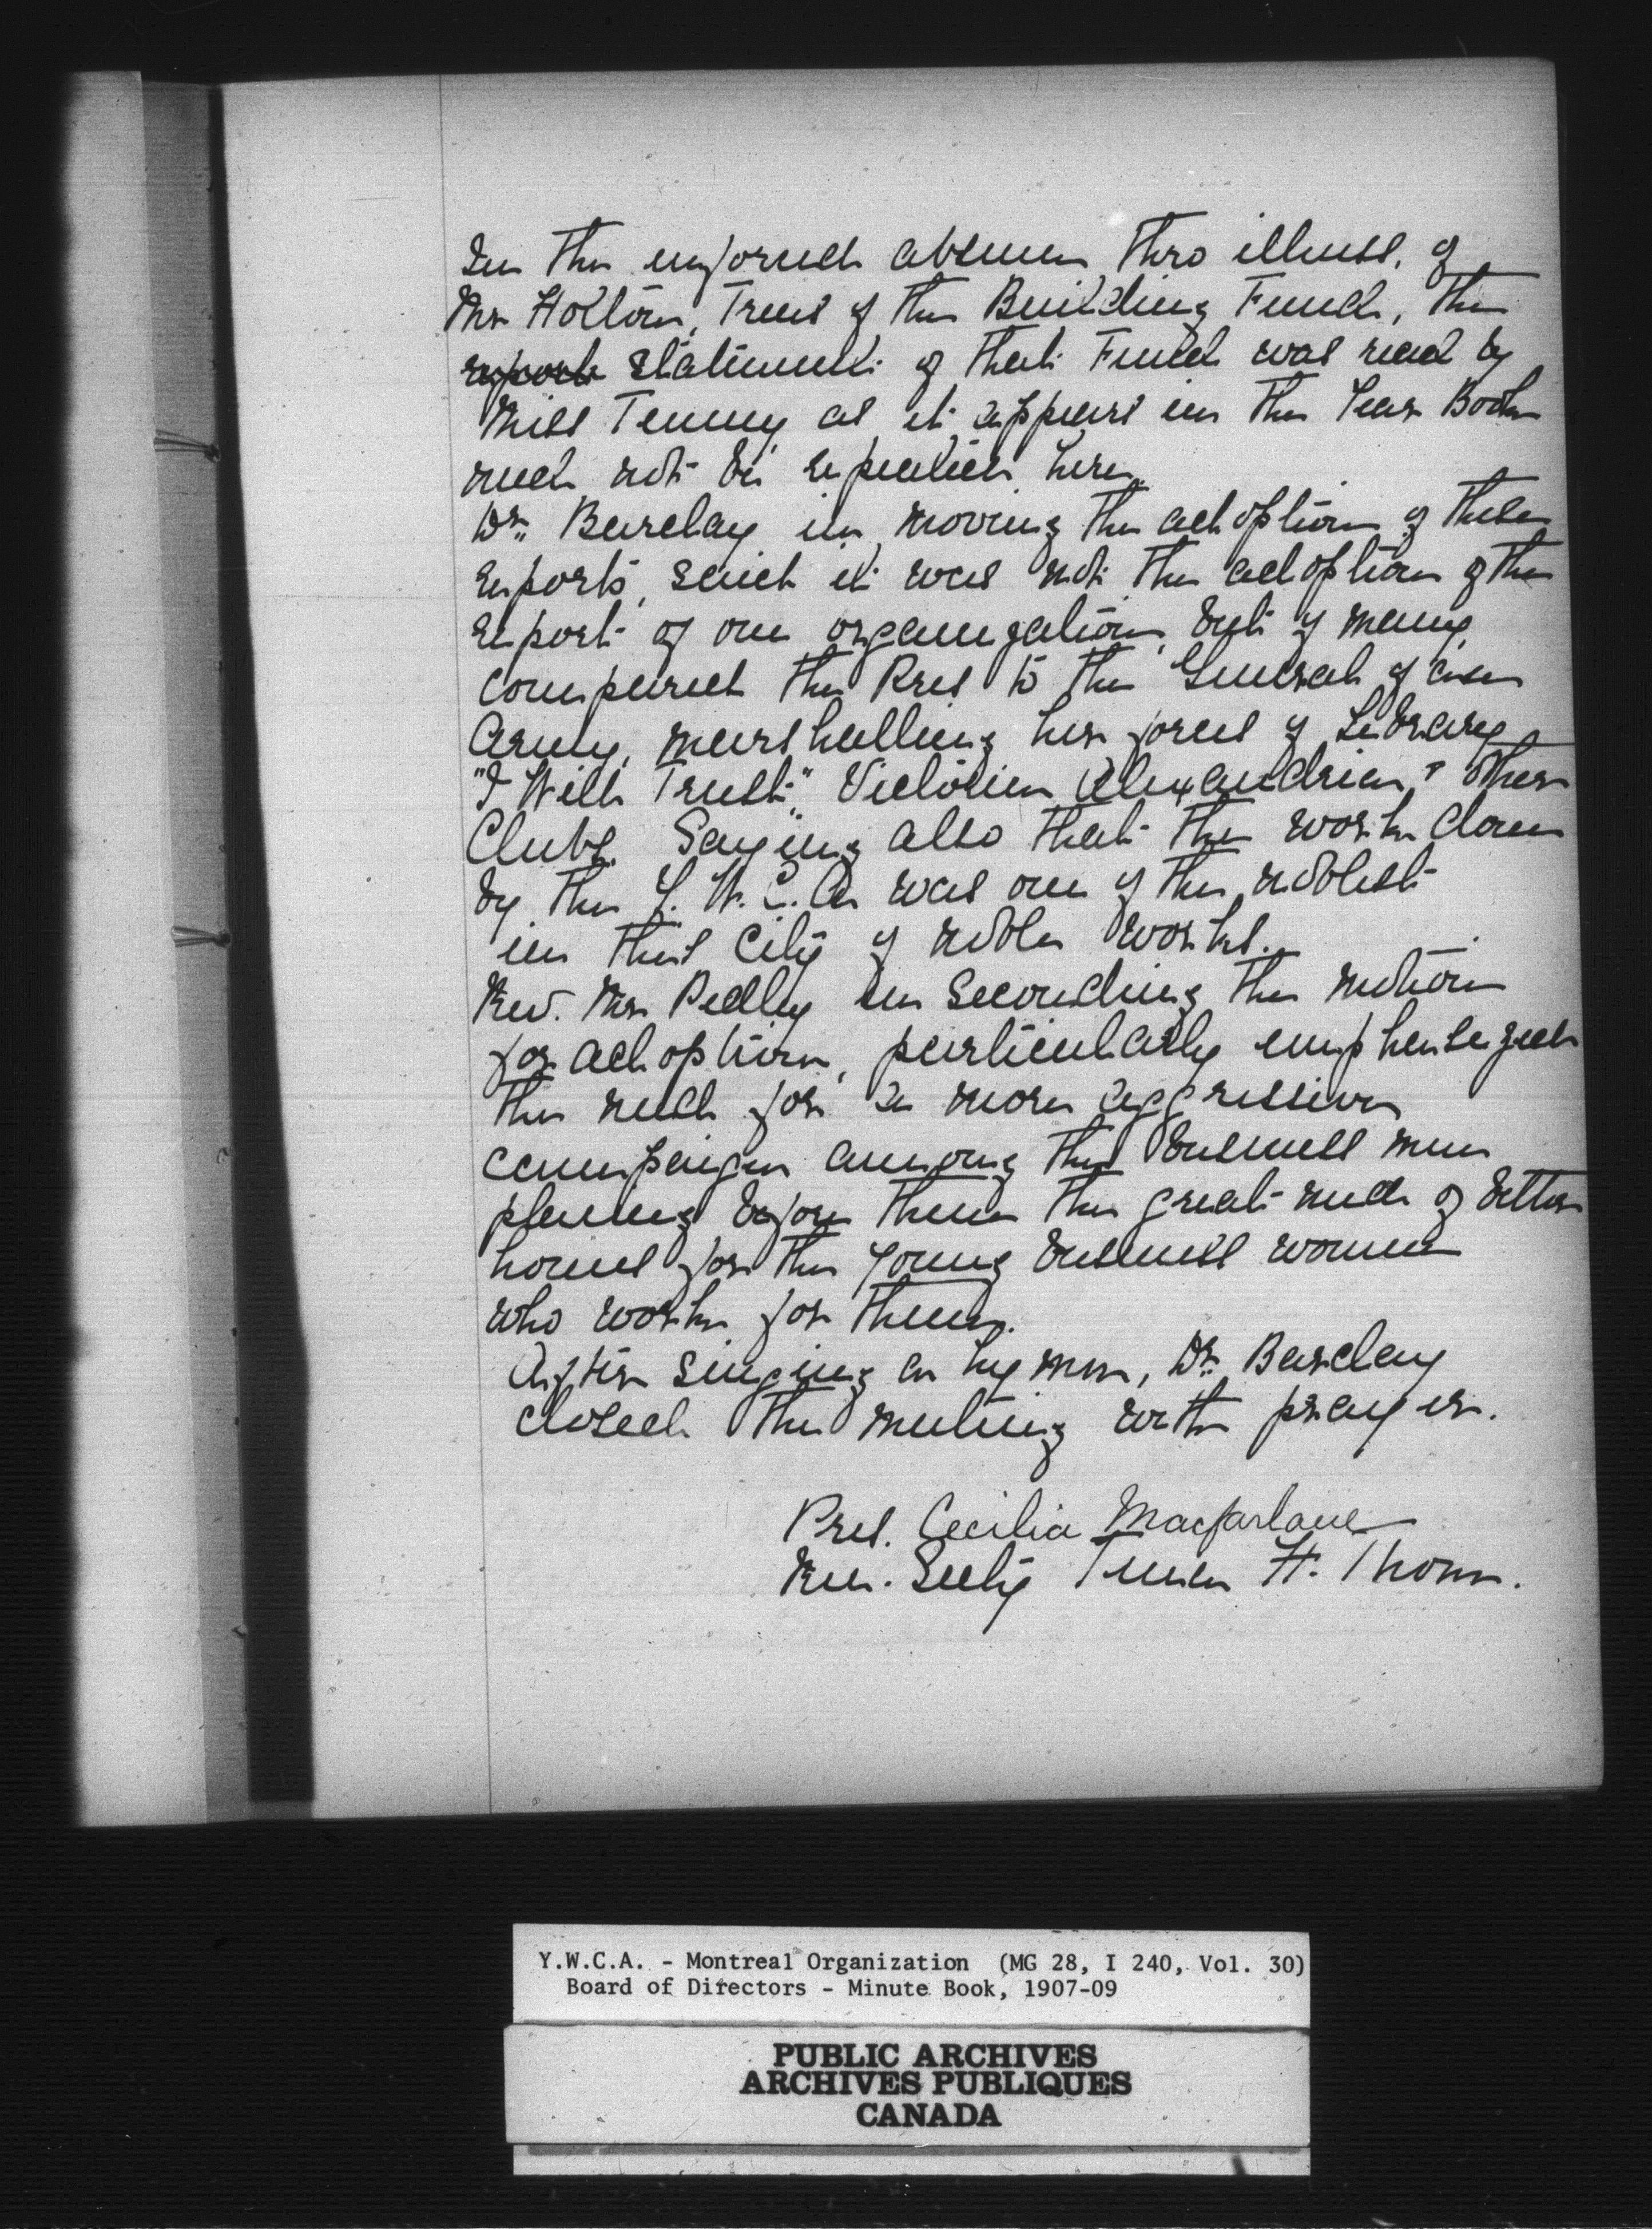 In the enforced absence thro illness, of
Mr Holton, Treas of the Building Fund, the
report statement of that Fund was read by
Miss Tenney as it appears in the Year Book
need not be repeated here.
Dr. Barclay in moving the adoption of these
reports, said it was not the adoption of the
report of one organization, but of many,
compared the Pres to the General of an
Army, marshalling her forces of Library
"I Will Trust", Victorian Alexandrian & other
Clubs. Saying also that the work done
by the Y.W.C.A was one of the noblest
in this City of noble works.
Rev. Mr Pedley in seconding the motion
for adoption, particularly emphasized
the need for a more aggressive
campaign among the business men
placing before them the great need of better
homes for the young business women
who work for them.
After singing a hymn, Dr. Barclay
closed the meeting with prayer.
Pres. Cecilia Macfarlane
Rec. Secty H. Thom.
Y.W.C.A. - Montreal Organization (MG 28, I 240, Vol. 30)
Board of Directors - Minute Book, 1907-09
PUBLIC ARCHIVES
ARCHIVES PUBLIQUES
CANADA